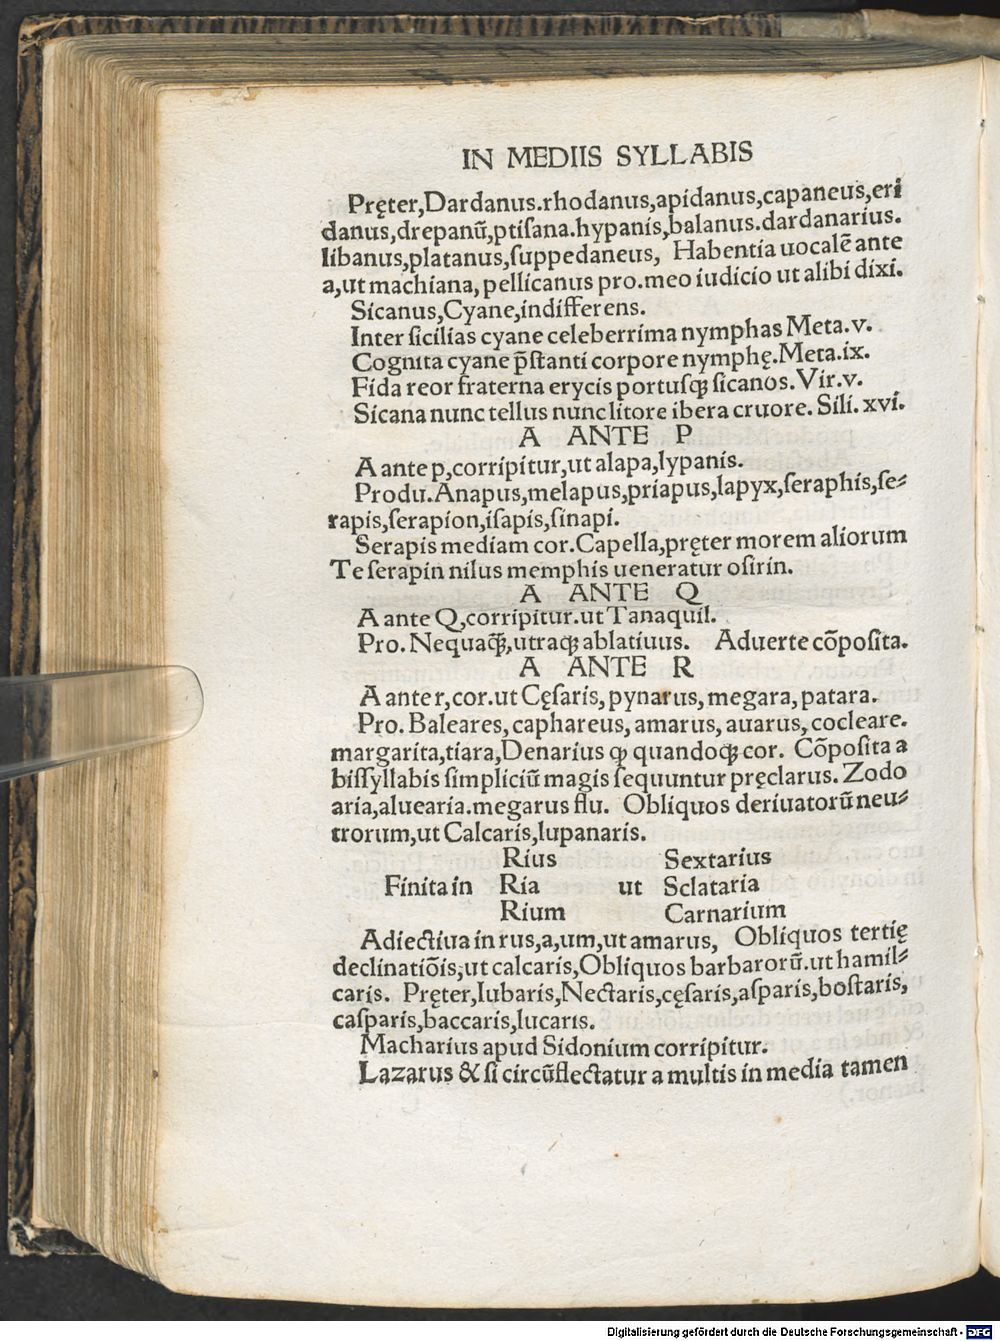 IN MEDIIS SYLLABIS
Pręter,Dardanus.rhodanus,apidanus,capaneus,eri
danus,drepanū,ptiſana.hypanis,balanus.dardanarius.
libanus,platanus,ſuppedaneus, Habentia uocalē ante
a,ut machiana, pellicanus pro.meo iudicio ut alibi dixi.
Sicanus,Cyane,indifferens.
Inter ſicilias cyane celeberrima nymphas Meta.v.
Cognita cyane p̄ſtanti corpore nymphę.Meta.ix.
Fida reor fraterna erycis portuſqꝫ ſicanos.Vir.v.
Sicana nunc tellus nunc litore ibera cruore. Sili.xvi.
A ANTE P
A ante p,corripitur,ut alapa,lypanis.
Produ.Anapus,melapus,priapus,Iapyx,ſeraphis,ſe⸗
rapis,ſerapion,iſapis,ſinapi.
Serapis mediam cor.Capella,pręter morem aliorum
Te ſerapin nilus memphis ueneratur oſirin.
A ANTE Q
A ante Q,corripitur.ut Tanaquil.
Pro. Nequaqꝫ̄,utraqꝫ ablatiuus. Aduerte cōpoſita.
A ANTE R
A ante r,cor.ut Cęſaris, pynarus, megara, patara.
Pro. Baleares, caphareus, amarus, auarus, cocleare.
margarita,tiara,Denarius ꝙ quandoqꝫ cor. Cōpoſita a
biſſyllabis ſimpliciū magis ſequuntur pręclarus. Zodo
aria,aluearia.megarus flu. Obliquos deriuatorū neu⸗
trorum,ut Calcaris,lupanaris.
Rius Sextarius
Finita in Ria ut Sclataria
Rium Carnarium
Adiectiua in rus,a,um,ut amarus, Obliquos tertię
declinatiōis,ut calcaris,Obliquos barbarorū.ut hamil⸗
caris. Pręter,Iubaris,Nectaris,cęſaris,aſparis,boſtaris,
caſparis,baccaris,lucaris.
Macharius apud Sidonium corripitur.
Lazarus & ſi circūflectatur a multis in media tamen
Digitalisierung gefördert durch die Deutsche Forschungsgemeinschaft - DFG